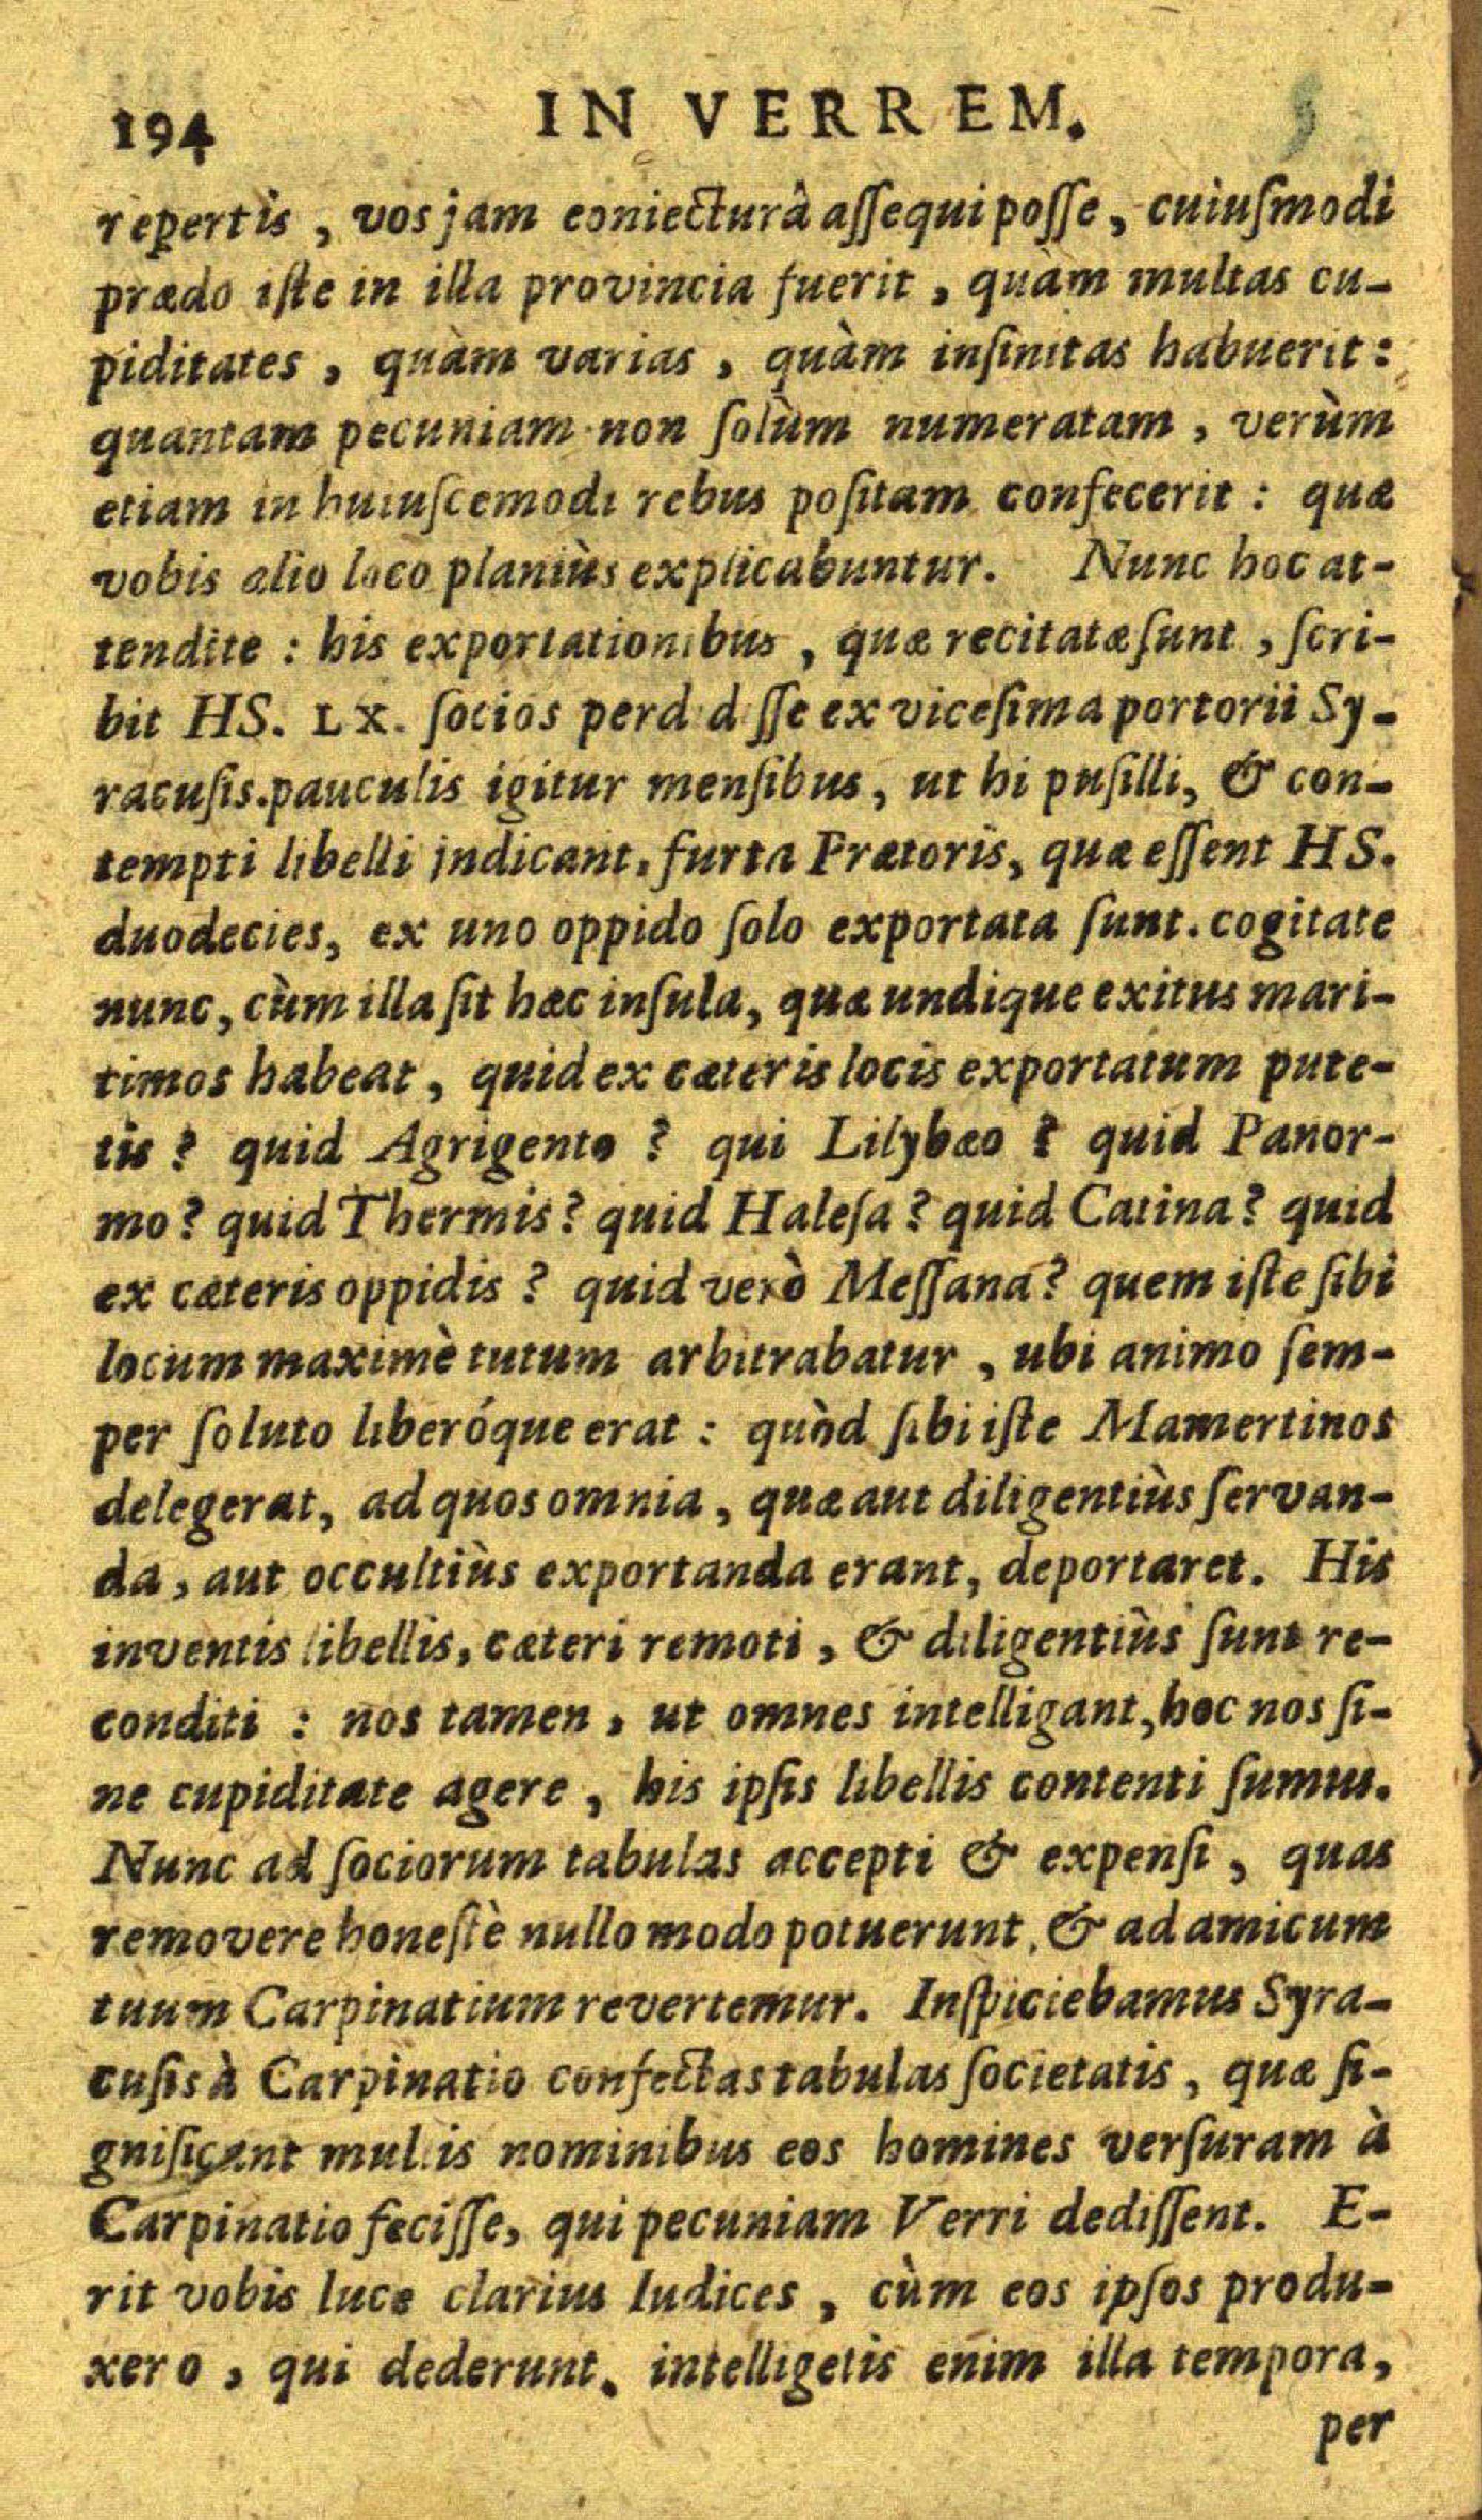 194 IN VERREM.
repertis, vos jam coniecturâ aſſequi poſſe, cuiuſmodi
prædo iſte in illa provincia fuerit, quàm multas cu-
piditates, quàm varias, quàm inſinitas habuerit:
quantam pecuniam non ſolùm numeratam, verùm
etiam in huiuſcemodi rebus poſitam confecerit: quæ
vobis alio loco planiùs explicabuntur. Nunc hoc at-
tendite: his exportationibus, quæ recitatæ ſunt, ſcri-
bit HS. LX. ſocios perd d ſſe ex viceſima portorii Sy-
racuſis. pauculis igitur menſibus, ut hi puſilli, & con-
tempti libelli indicant, furta Prætoris, quæ eſſent HS.
duodecies, ex uno oppido ſolo exportata ſunt. cogitate
nunc, cùm illa ſit hæc inſula, quæ undique exitus mari-
timos habeat, quid ex cæteris locis exportatum pute-
tis? quid Agrigento? qui Lilybæo? quid Panor-
mo? quid Thermis? quid Haleſa? quid Catina? quid
ex cæteris oppidis? quid verò Meſſana? quem iſte ſibi
locum maximè tutum arbitrabatur, ubi animo ſem-
per ſoluto liberóque erat: quòd ſibi iſte Mamertinos
delegerat, ad quos omnia, quæ aut diligentiùs ſervan-
da, aut occultiùs exportanda erant, deportaret. His
inventis libellis, cæteri remoti, & diligentiùs ſunt re-
conditi: nos tamen, ut omnes intelligant, hoc nos ſi-
ne cupiditate agere, his ipſis libellis contenti ſumus.
Nunc ad ſociorum tabulas accepti & expenſi, quas
removere honeſtè nullo modo potuerunt, & ad amicum
tuum Carpinatium revertemur. Inſpiciebamus Syra-
cuſis à Carpinatio confectas tabulas ſocietatis, quæ ſi-
gniſicant multis nominibus eos homines verſuram à
Carpinatio feciſſe, qui pecuniam Verri dediſſent. E-
rit vobis luce clarius Iudices, cùm eos ipſos produ-
xero, qui dederunt. intelligetis enim illa tempora,
per